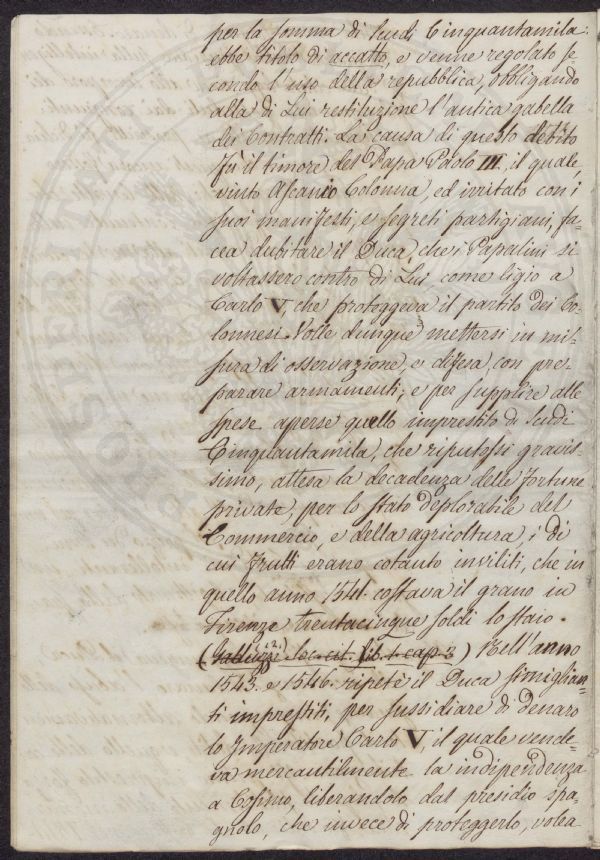 per la somma di Scudi Cinquantamila:
ebbe titolo di accatto, e venne regolato se-
condo l'uso della repubblica, obbligando
alla di Lui restituzione l'antica gabella
dei Contratti. La causa di questo debito
fù il timore del Papa Paolo III. il quale,
vinto Ascanio Colonna, ed irritato con i
suoi manifesti, e segreti partigiani, fa-
cea dubitare il Duca, che i Papalini si
voltassero contro di Lui, come ligio a
Carlo V, che proteggeva il partito dei Co-
lonnesi. Volle dunque mettersi in mi-
sura di osservazione, e difesa, con pre-
parare armamenti; e per supplire alle
spese aperse quello imprestito di Scudi
Cinquantamila, che riputossi gravis-
simo, attesa la decadenza delle fortune
private, per lo stato deplorabile del
Commercio, e della agricoltura, i di
cui frutti erano cotanto inviliti, che in
quello anno 1541. costava il grano in
Firenze trentacinque soldi lo staio.
(Galluzzi loc. cit. lib. 1. cap. 3) Nell'anno
1543. e 1546. ripetè il Duca simiglian-
ti imprestiti, per sussidiare di denaro
lo Imperatore Carlo V, il quale vende-
va mercantilmente la indipendenza
a Cosimo, liberandolo dal presidio spa-
gnolo, che invece di proteggerlo, volea
PROSPERITATI